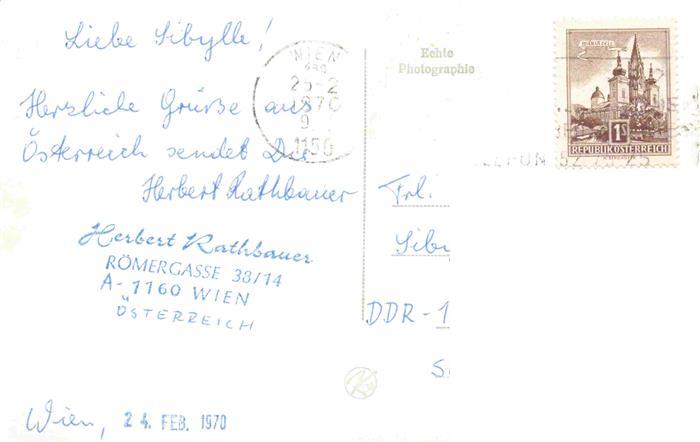 Liebe Sibylle!
Herzliche Grüße aus
Österreich sendet Dir
Herbert Rathbauer
Herbert Rathbauer
RÖMERGASSE 38/14
A-1160 WIEN
ÖSTERREICH
Wien, 24. FEB. 1970
WIEN
1150
Echte
Photographie
MARIAZELL
1S
REPUBLIK ÖSTERREICH
Frl.
DDR-1